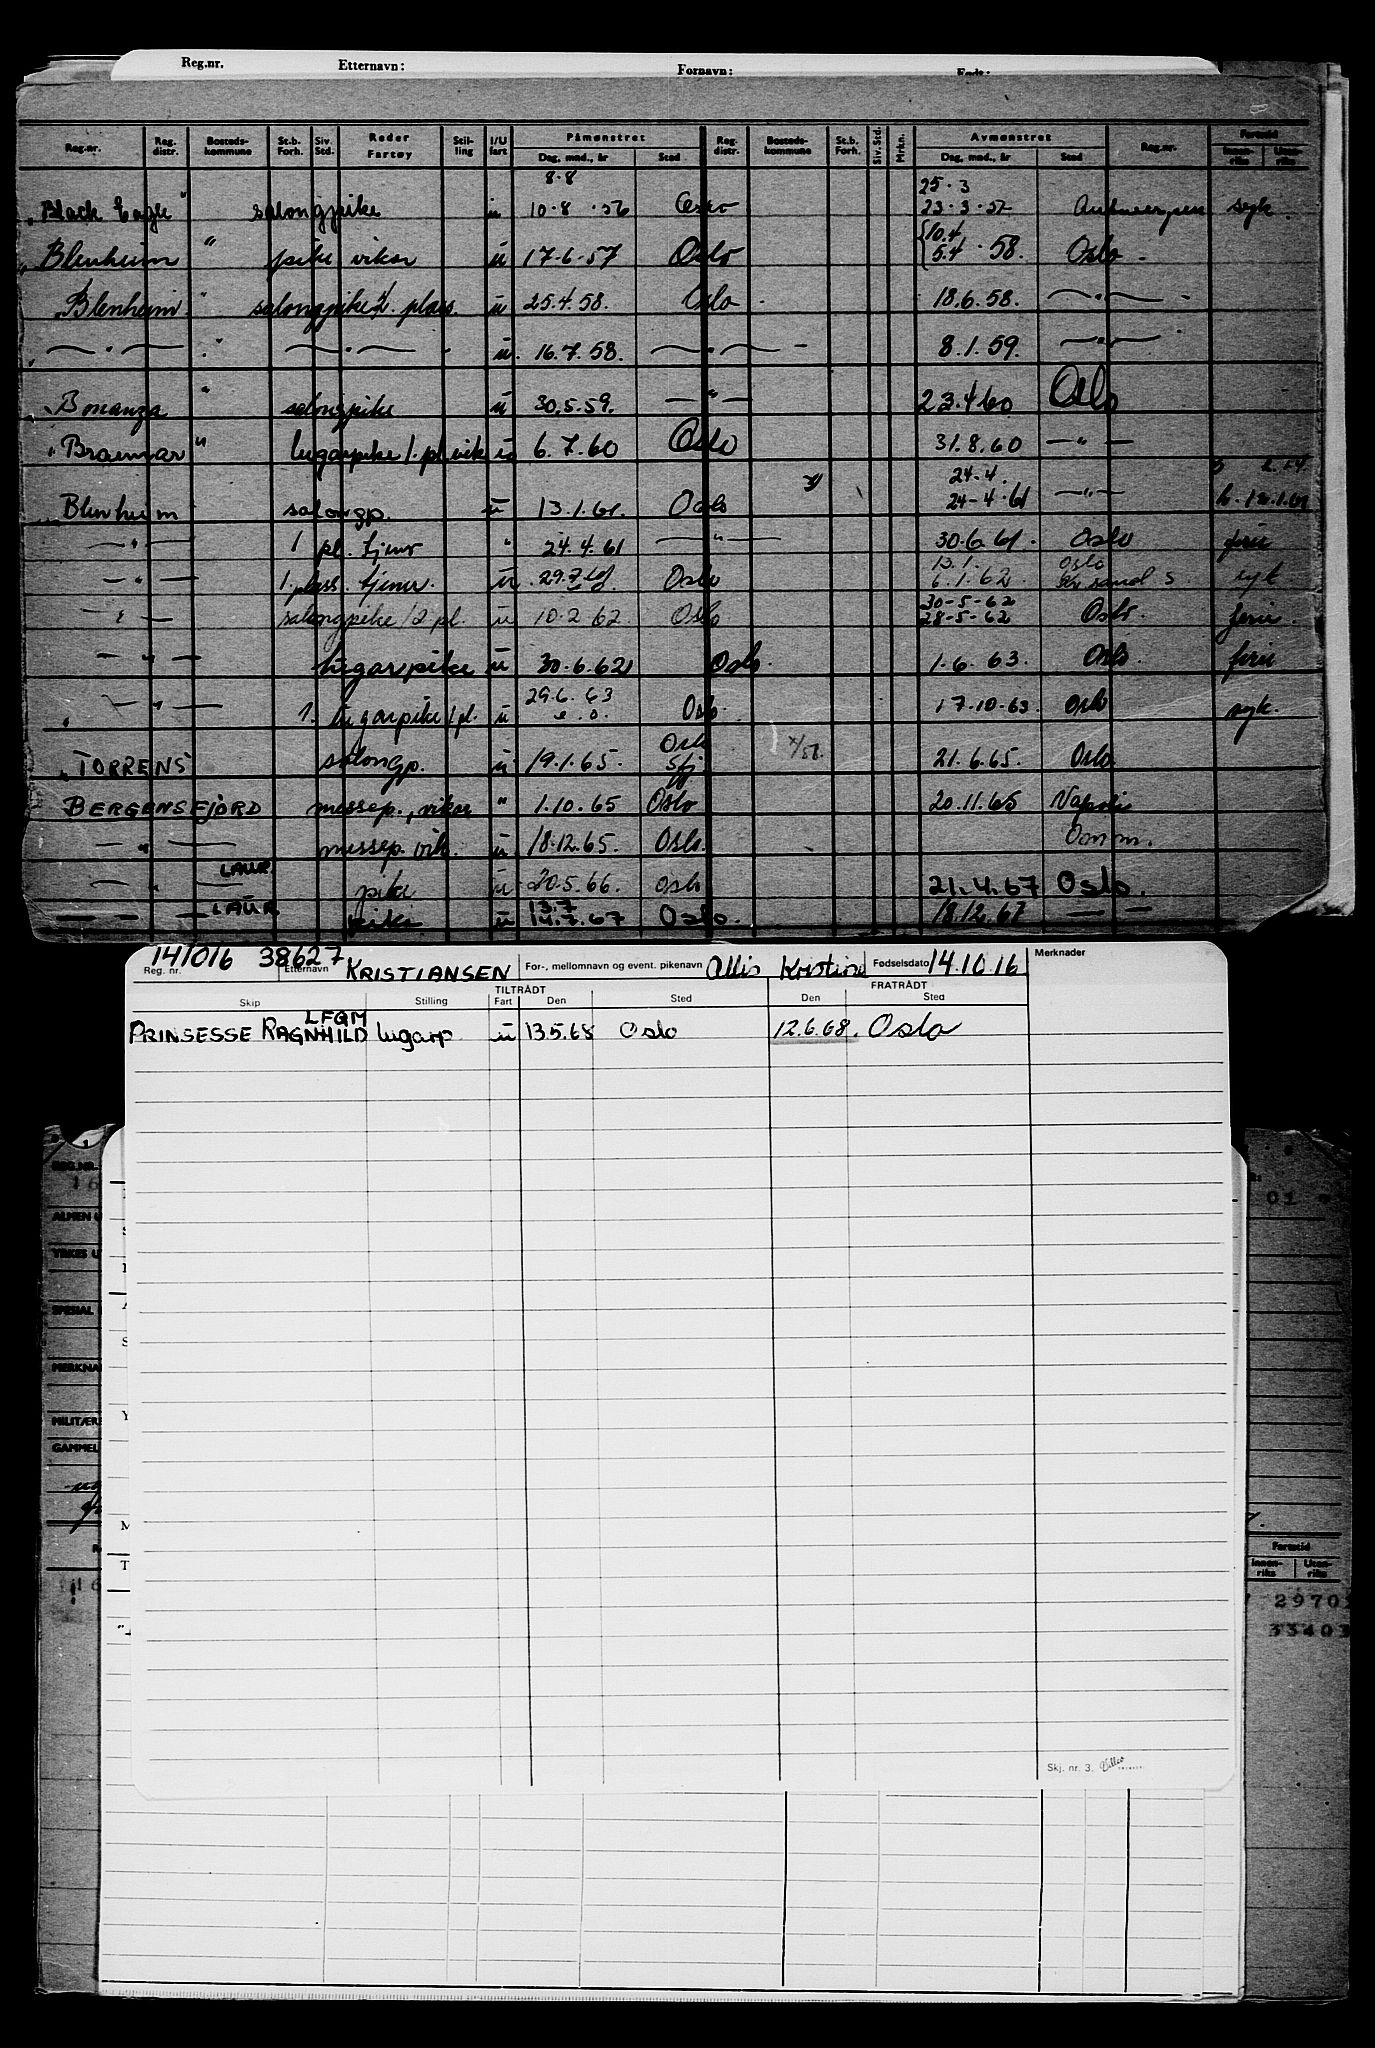 Reg.nr. Etternavn: Fornavn: Født:
Reg.nr. Reg. distr. Bosteds-kommune St.b. Forh. Siv. Std. Reder Fartøy Stil-ling I/U fart Påmønstret Dag, mnd., år Sted Reg. distr. Bosteds-kommune St.b. Forh. Siv. Std. Mrkn. Avmønstret Dag, mnd., år Sted Reg.nr. Fartstid Innen-riks Uten-riks
8.8 25.3
"Black Eagle" salongpike u 10.8.56 Oslo 23.3.57 Antwerpen syk.
"Blenheim" pike vikar u 17.6.57 Oslo 10.4 5.4.58. Oslo
"Blenheim" salongpike 2. plass. u 25.4.58. Oslo 18.6.58. — " —
" — " — " — " — u. 16.7.58. — " — 8.1.59. — " —
"Bonanza" salongpike u 30.5.59. — " — 23.4.60 Oslo
"Braemar" lugarpike 1. pl. vik u 6.7.60 Oslo 31.8.60 — " —
24-4.
"Blenheim salongp. u 13.1.61. Oslo 24-4-61 — " —
— " — 1 pl. tjener " 24.4.61 — " — 30.6.61. Oslo ferie
13.1. Oslo
— " — 1. plass. tjener. u 29.7.61 Oslo 6.1.62. Kr.sand S syk
30-5-62
— " — salongpike / 2 pl. u 10.2 62 Oslo 28-5-62 Oslo. ferie.
— " — lugarpike u 30.6.62 Oslo. 1.6.63. Oslo. ferie
29.6.63
— " — 1. lugarpike 1 pl. u Oslo 17.10.63. Oslo syk.
"TORRENS" salongp. u 19.1.65. Oslo 21.6.65. Oslo
BERGENSFJORD messep., vikar " 1.10.65 Oslo 20.11.65 Napoli
— " — messep. vik. u 18.12.65. Oslo.
— " — LAUR pike u 20.5.66. Oslo 21.4.67 Oslo.
13.7
— — — LAUR pike u 14.7.67 Oslo. 18.12.67 — —
141016 38627
Reg. nr. Etternavn KRISTIANSEN For-, mellomnavn og event. pikenavn Allis Kristine Fødselsdato 14.10.16 Merknader
TILTRÅDT FRATRÅDT
Skip Stilling Fart Den Sted Den Sted
LFQM
PRINSESSE RAGNHILD lugarp. u 13.5.68 Oslo 12.6.68. Oslo
REG.NR.
16
01
ALMEN
YRKES U
SPESIAL
MERKNA
MILITÆR
GAMMEL
Fartstid
Innen-riks Uten-riks
2970
33403
Skj. nr. 3.